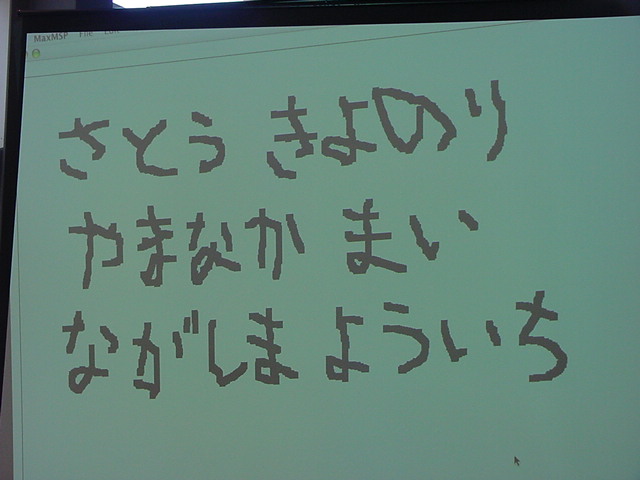 MaxMSP File Edit
さとう きよのり
やまなか まい
ながしま よういち